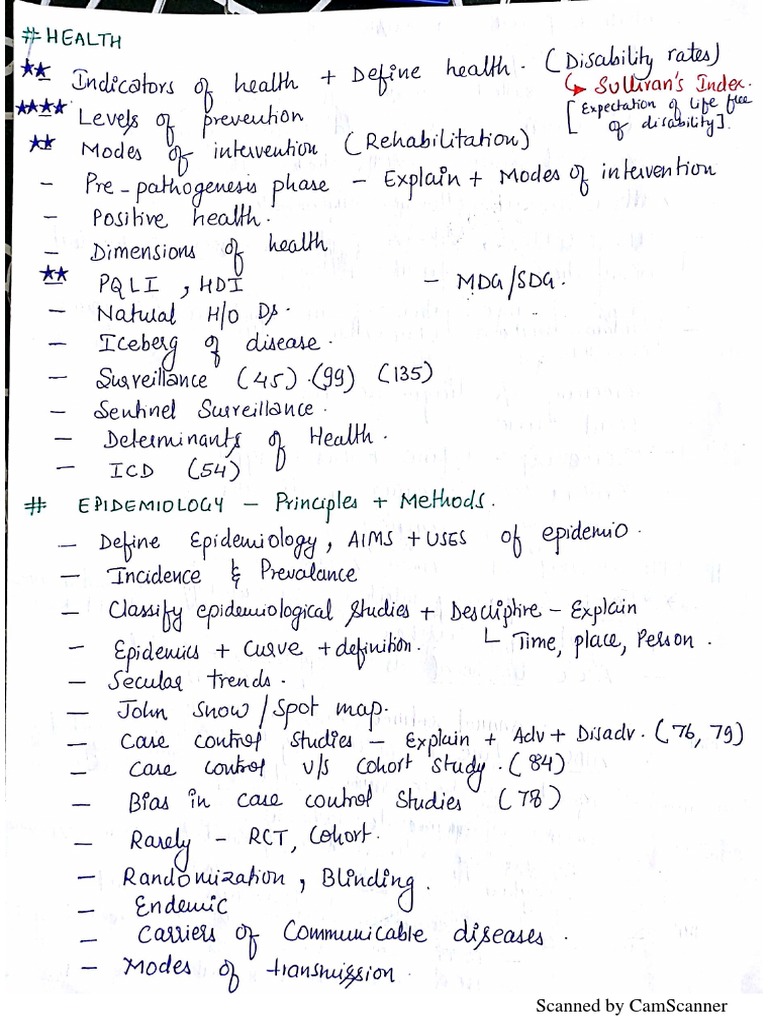 # HEALTH
★★ Indicators of health + Define health. (Disability rates)
↳ Sullivan's Index.
[Expectation of life free of disability].
★★★★ Levels of prevention
★★ Modes of intervention (Rehabilitation)
- Pre-pathogenesis phase - Explain + Modes of intervention
- Positive health.
- Dimensions of health
★★ PQLI, HDI - MDG/SDG.
- Natural H/O Ds.
- Iceberg of disease.
- Surveillance (45) (99) (135)
- Sentinel Surveillance.
- Determinants of Health.
- ICD (54)
# EPIDEMIOLOGY - Principles + Methods.
- Define Epidemiology, AIMS + USES of epidemio.
- Incidence & Prevalance
- Classify epidemiological studies + Desciptive - Explain
- Epidemics + Curve + definition. └ Time, place, Person.
- Secular trends.
- John Snow / Spot map.
- Case control studies - Explain + Adv + Disadv. (76, 79)
- Case control v/s Cohort study. (84)
- Bias in case control Studies (78)
- Rarely - RCT, Cohort.
- Randomization, Blinding.
- Endemic
- Carriers of Communicable diseases.
- Modes of transmission.
Scanned by CamScanner